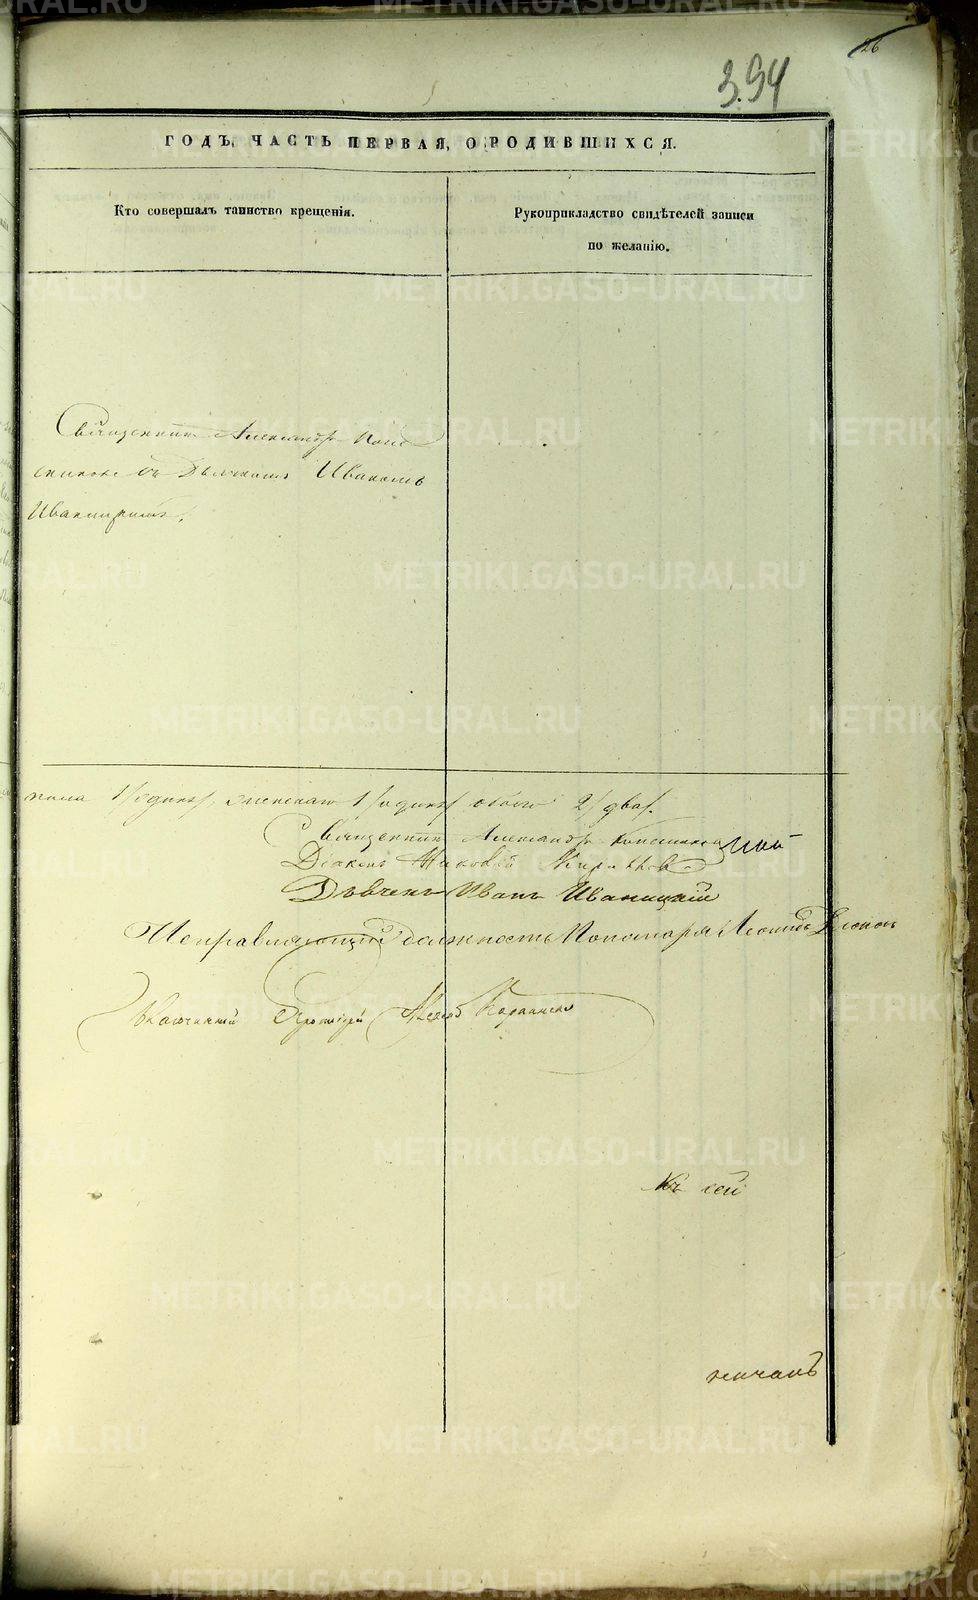 26
394
ГОДЪ, ЧАСТЬ ПЕРВАЯ, О РОДИВШИХСЯ.
Кто совершалъ таинство крещенія.
Рукоприкладство свидѣтелей записи
по желанію.
Священникъ Александръ
съ Дьячкомъ Иваномъ
Иваницкимъ.
пола 1/одинъ/, женскаго 1/одинъ/ обоего 2/два/.
Священникъ Александръ
Діаконъ
Дьячекъ Иванъ Иваницкій
Исправляющій должность Пономаря Леонидъ
Благочинный Протоіерей
Къ сей
печать
METRIKI.GASO-URAL.RU